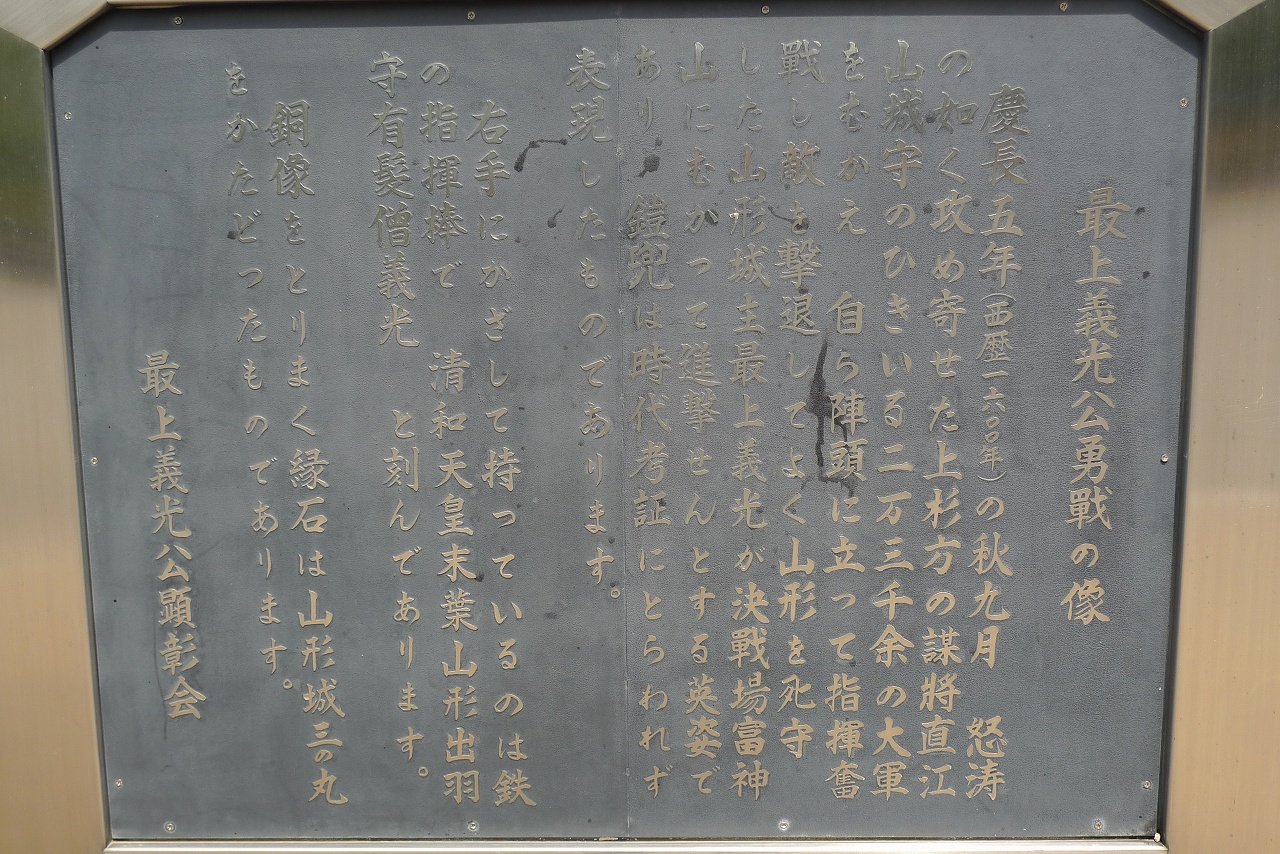 最上義光公勇戰の像
慶長五年(西歴一六〇〇年)の秋九月　怒涛
の如く攻め寄せた上杉方の謀將直江
山城守のひきいる二万三千余の大軍
をむかえ　自ら陣頭に立って指揮奮
戰し敵を撃退してよく山形を死守
した山形城主最上義光が決戰場富神
山にむかって進撃せんとする英姿で
あり　鎧兜は時代考証にとらわれず
表現したものであります。
右手にかざして持っているのは鉄
の指揮棒で　清和天皇末葉山形出羽
守有髪僧義光　と刻んであります。
銅像をとりまく縁石は山形城三の丸
をかたどったものであります。
最上義光公顕彰会